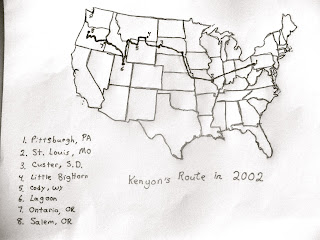 1. Pittsburgh, PA
2. St. Louis, MO
3. Custer, S.D.
4 Little BigHorn
5 Cody, WY
6. Lagoon
7. Ontario, OR
8. Salem, OR
Kenyon's Route in 2002